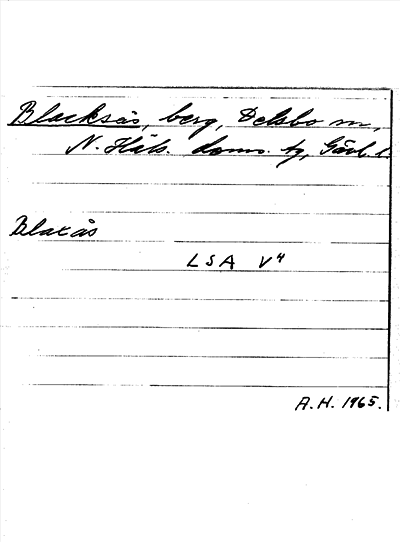 Blacksås, berg, Delsbo sn,
N. Häls. doms. tg, Gävl. l.
Blaxås
LSA V4
A.H. 1965.